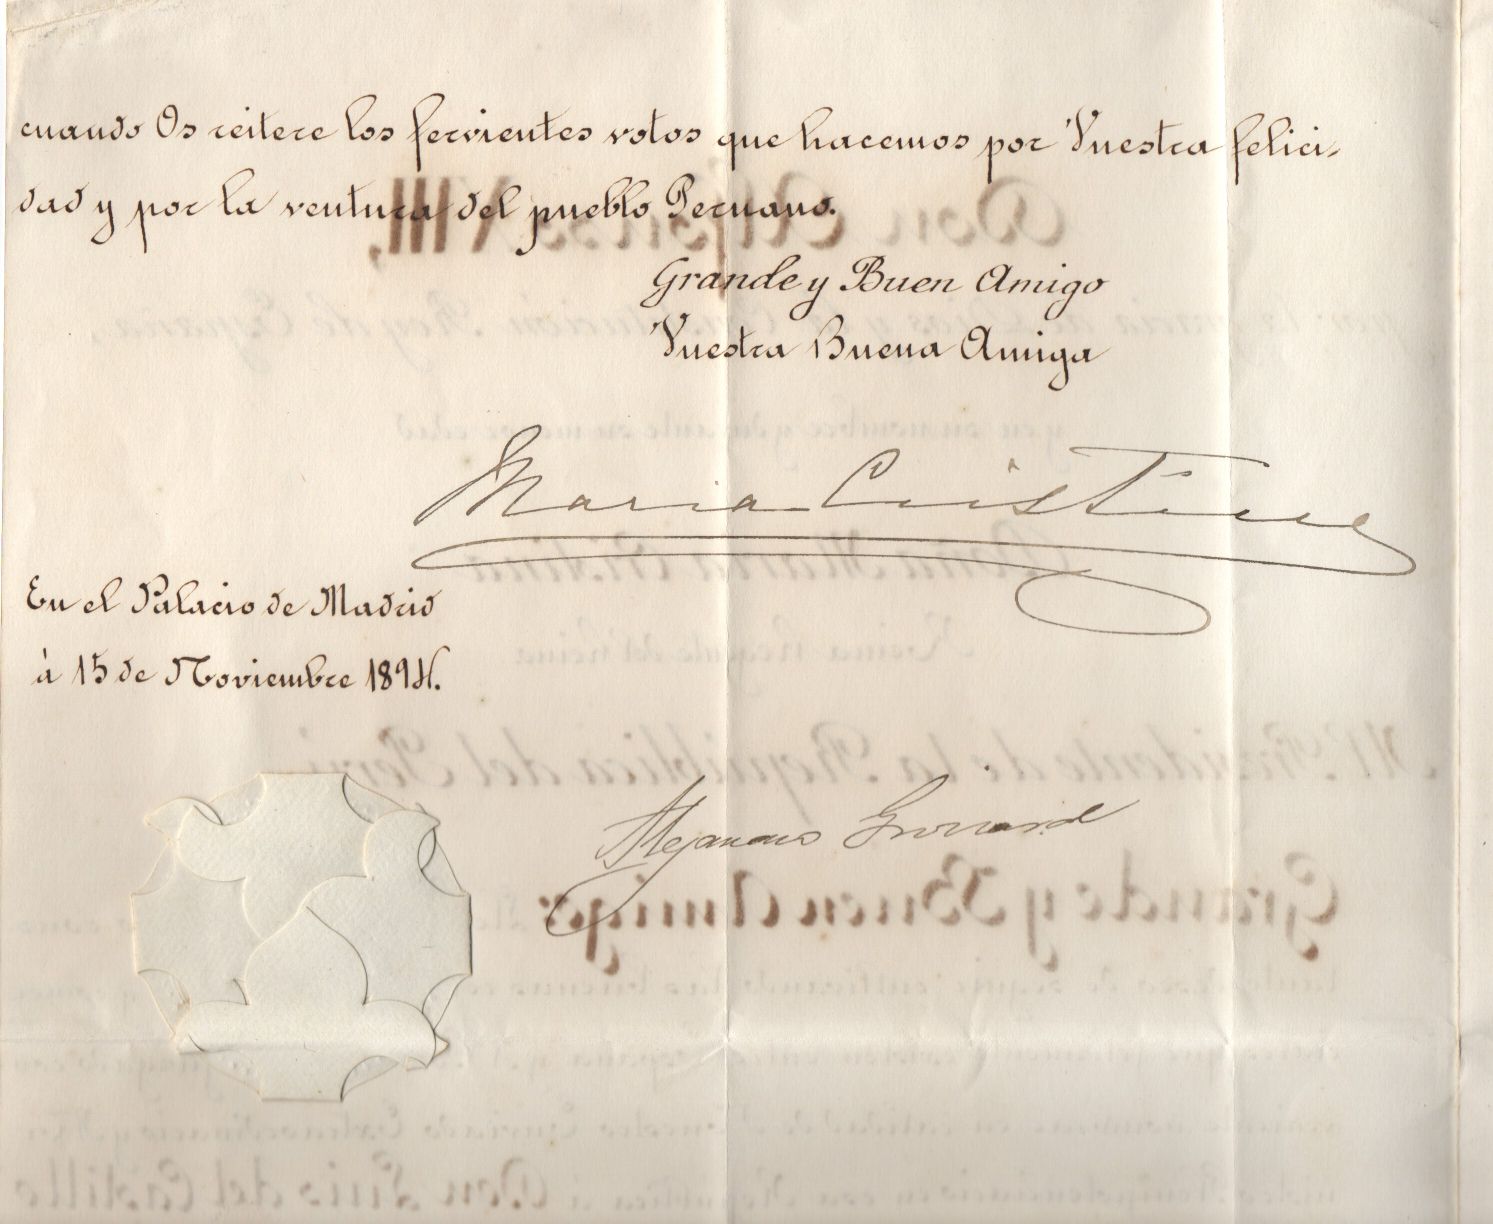 cuando Os reitere los fervientes votos que hacemos por Vuestra felici-
dad y por la ventura del pueblo Peruano.
Grande y Buen Amigo
Vuestra Buena Amiga
Maria Cristina
En el Palacio de Madrid
á 15 de Noviembre 1894.
Alejandro Groizard